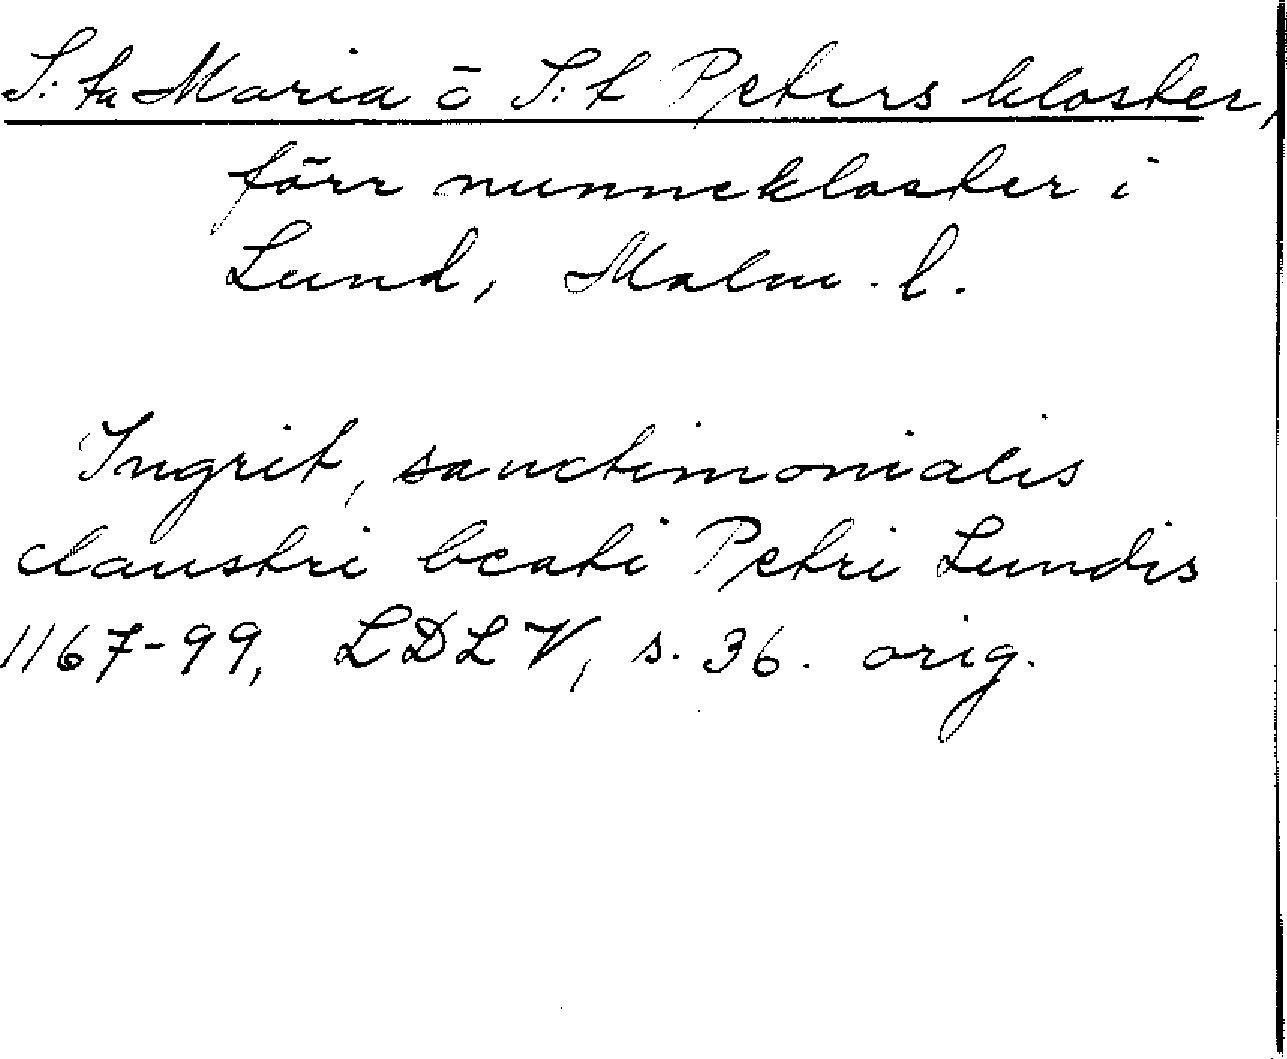 S:ta Maria ō S:t Peters kloster,
förr nunnekloster i
Lund, Malm. l.
Ingrit, sanctimonialis
claustri beati Petri Lundis
1167-99, LDLV, s. 36. orig.